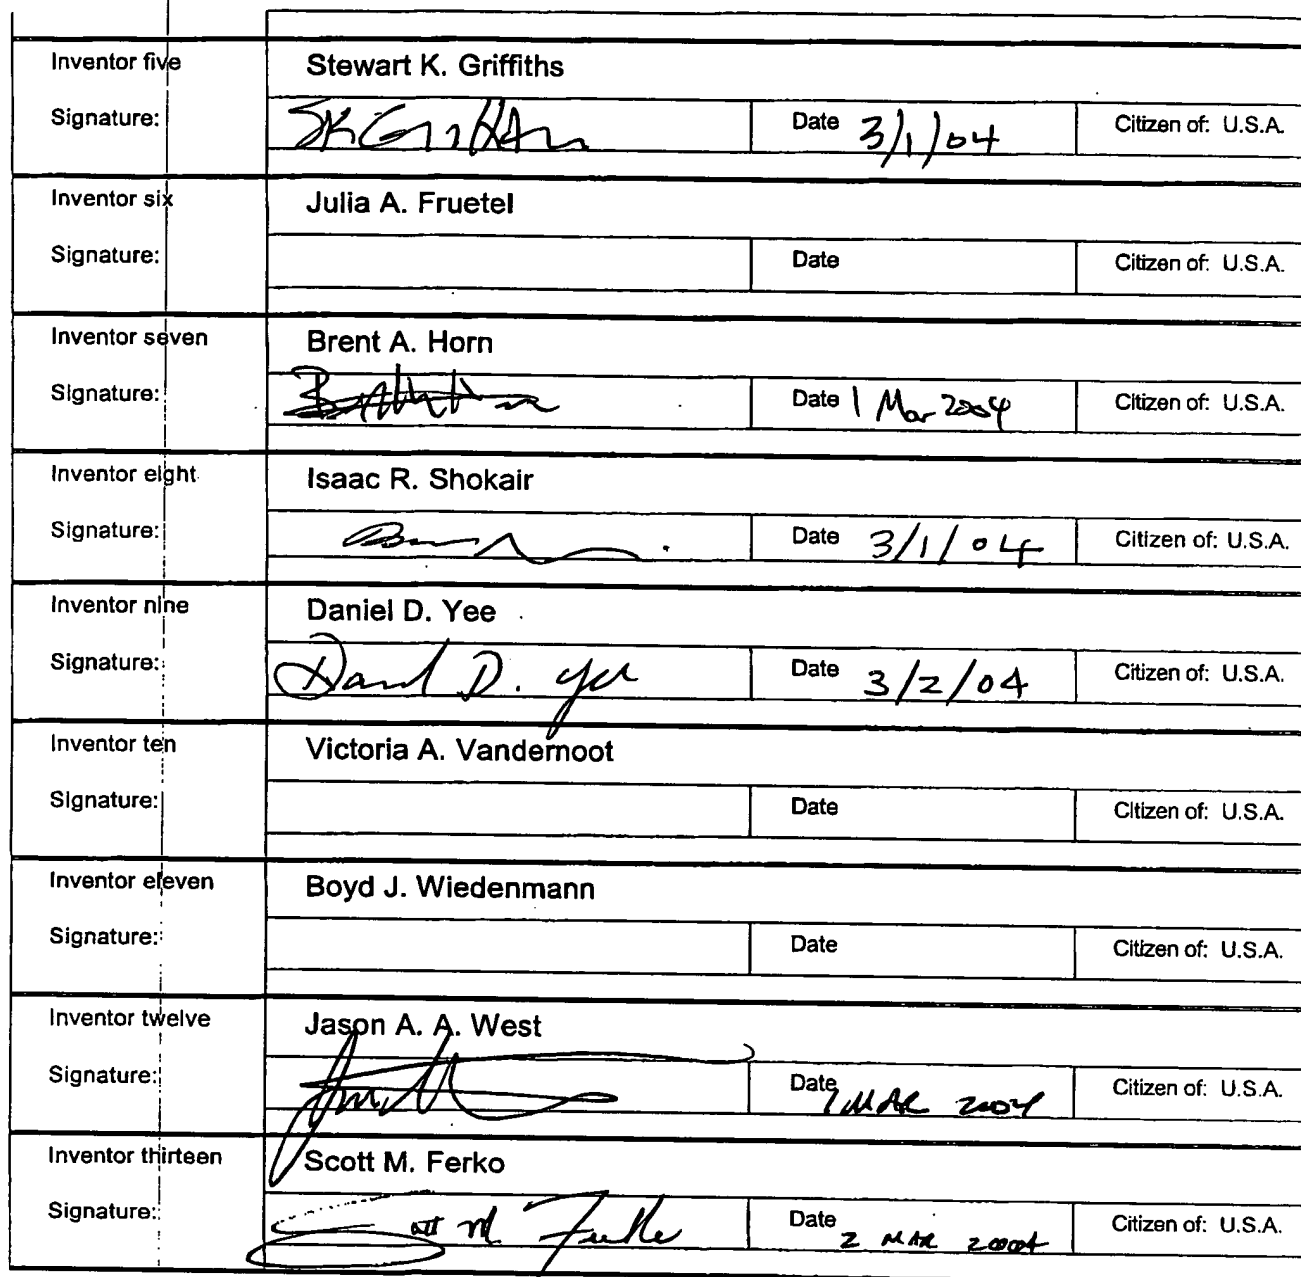 Inventor five Stewart K. Griffiths
Signature: SKGriffiths Date 3/1/04 Citizen of: U.S.A.
Inventor six Julia A. Fruetel
Signature: Date Citizen of: U.S.A.
Inventor seven Brent A. Horn
Signature: Date 1 Mar 2004 Citizen of: U.S.A.
Inventor eight Isaac R. Shokair
Signature: Date 3/1/04 Citizen of: U.S.A.
Inventor nine Daniel D. Yee
Signature: Daniel D. Yee Date 3/2/04 Citizen of: U.S.A.
Inventor ten Victoria A. Vandernoot
Signature: Date Citizen of: U.S.A.
Inventor eleven Boyd J. Wiedenmann
Signature: Date Citizen of: U.S.A.
Inventor twelve Jason A. A. West
Signature: Date 1 MAR 2004 Citizen of: U.S.A.
Inventor thirteen Scott M. Ferko
Signature: Scott M. Ferko Date 2 MAR 2004 Citizen of: U.S.A.